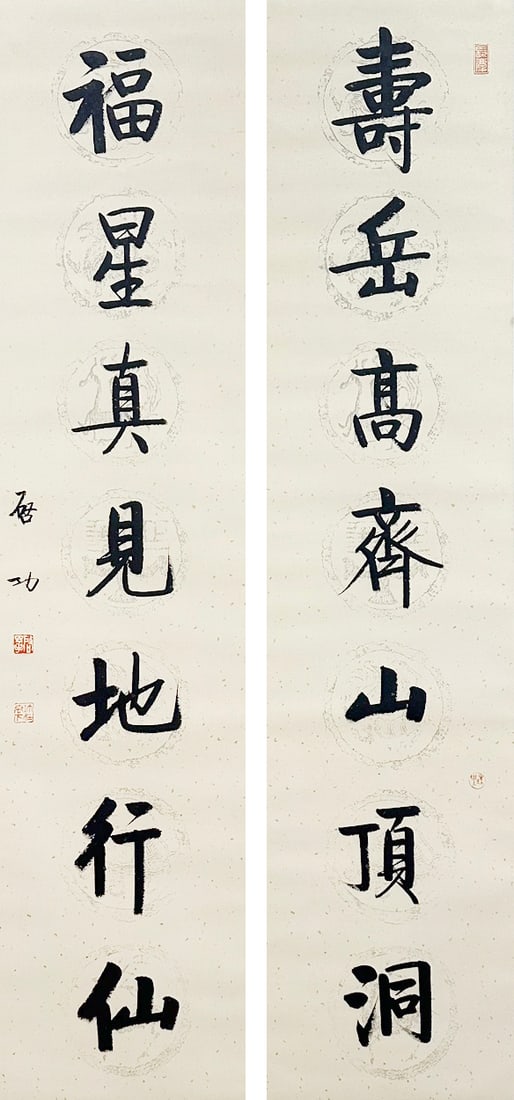 壽岳高齊山頂洞
福星真見地行仙
啓功